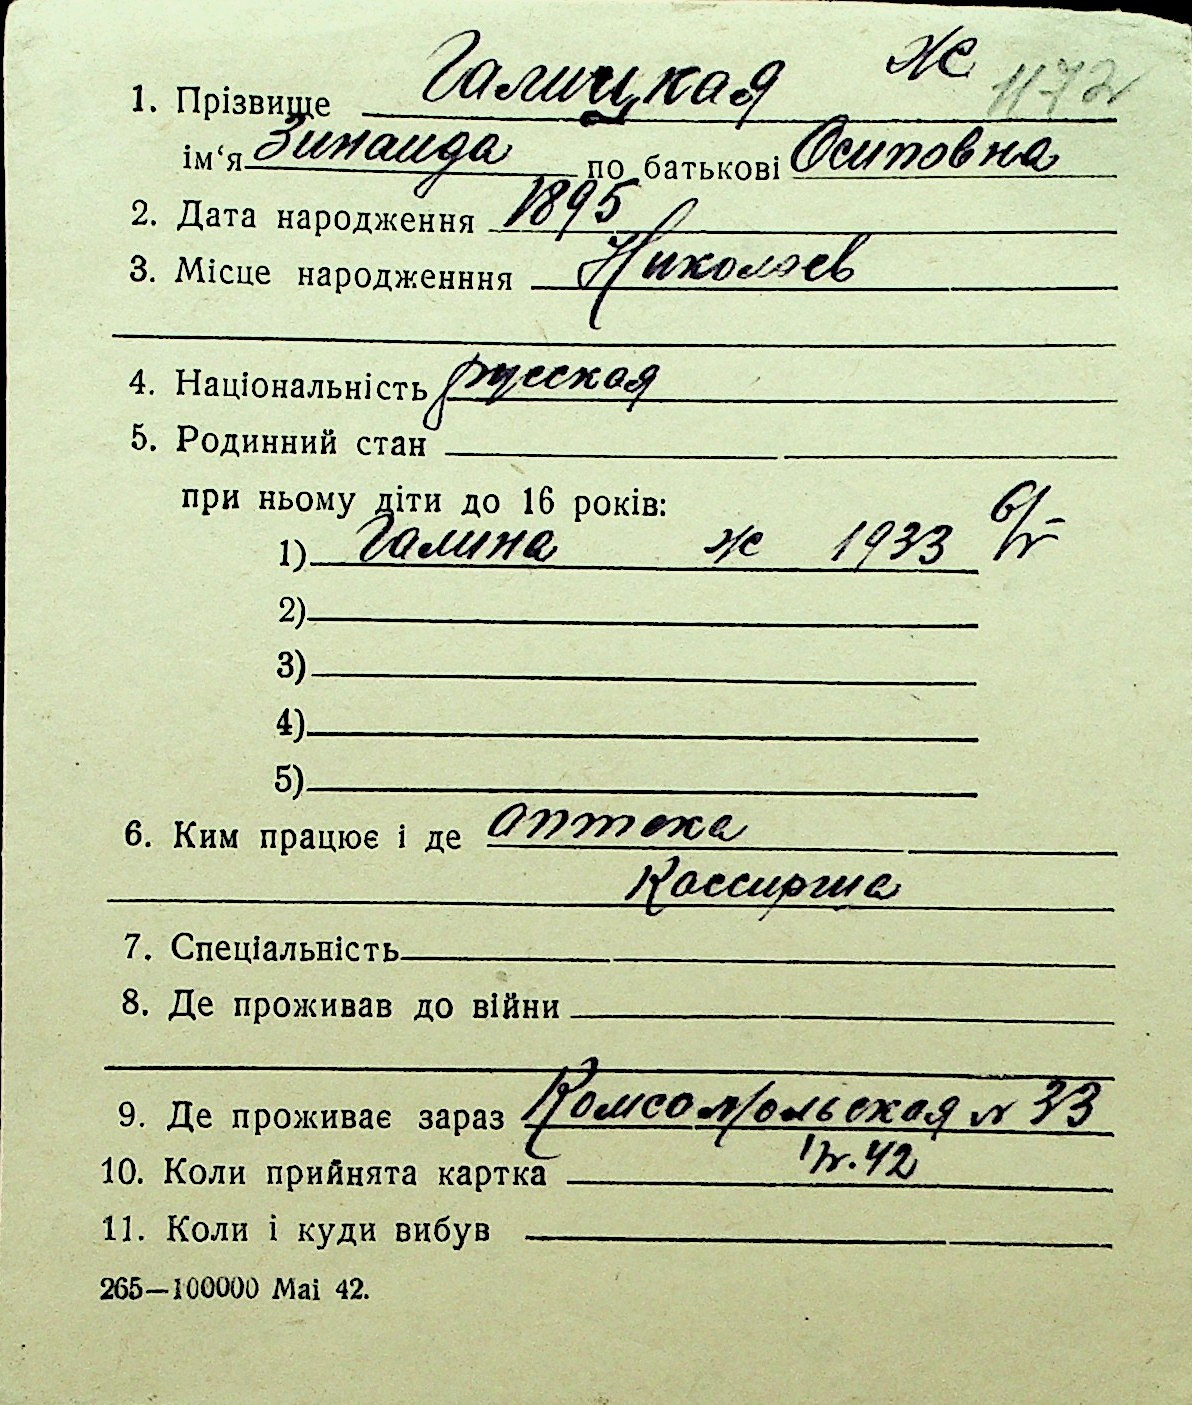 Ж 1172
1. Прізвище Галицкая
ім‘я Зинаида по батькові Осиповна
2. Дата народження 1895
3. Місце народженння Николаев
4. Національність русская
5. Родинний стан
при ньому діти до 16 років:
1) Галина ж 1933
2)
3)
4)
5)
6. Ким працює і де аптека
Кассирша
7. Спеціальність
8. Де проживав до війни
9. Де проживає зараз Комсомольская № 33
10. Коли прийнята картка
11. Коли і куди вибув
265—100000 Маі 42.